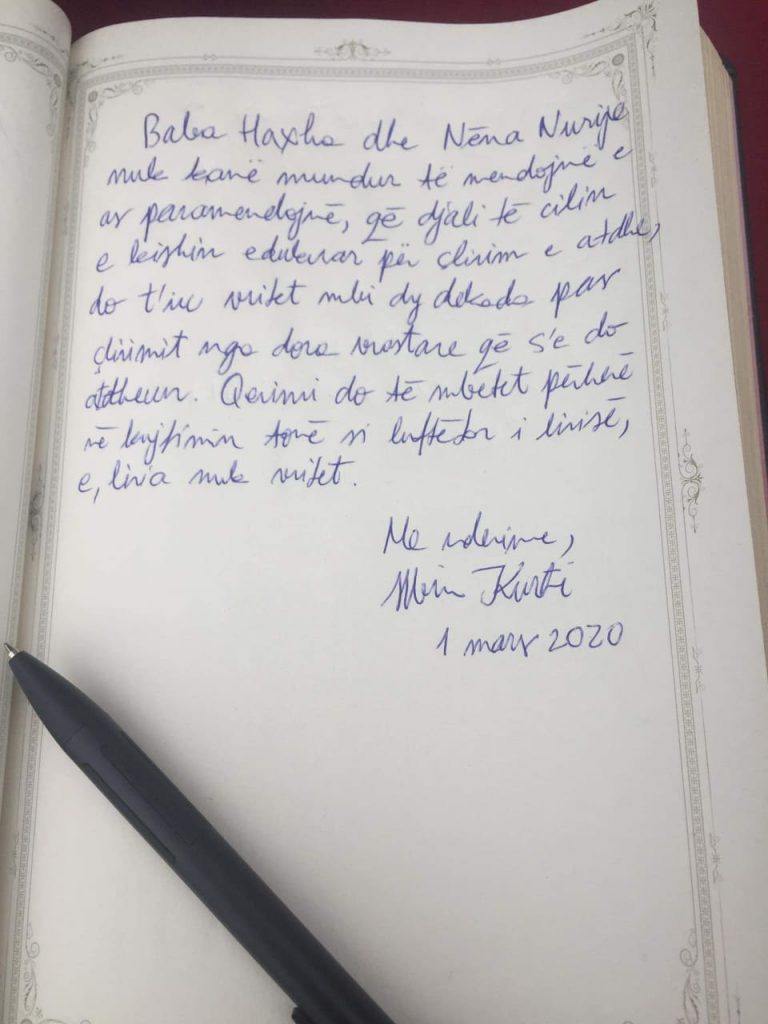 Baba Haxha dhe Nëna Nurije
nuk kanë mundur të mendojnë e
as paramendojnë, që djali të cilin
e kishin edukuar për çlirim e atdhe,
do t'iu vritet mbi dy dekada pas
çlirimit nga dora vrastare që s'e do
atdheun. Qerimi do të mbetet përherë
në kujtimin tonë si luftëtar i lirisë,
e, liria nuk vritet.
Me nderime,
Albin Kurti
1 mars 2020